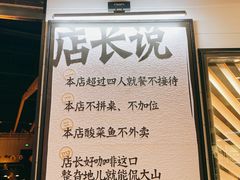 店长说
一 本店超过四人就餐不接待
二 本店不拼桌、不加位
三 本店酸菜鱼不外卖
四 店长好咖啡这口
整杳地儿就能侃大山